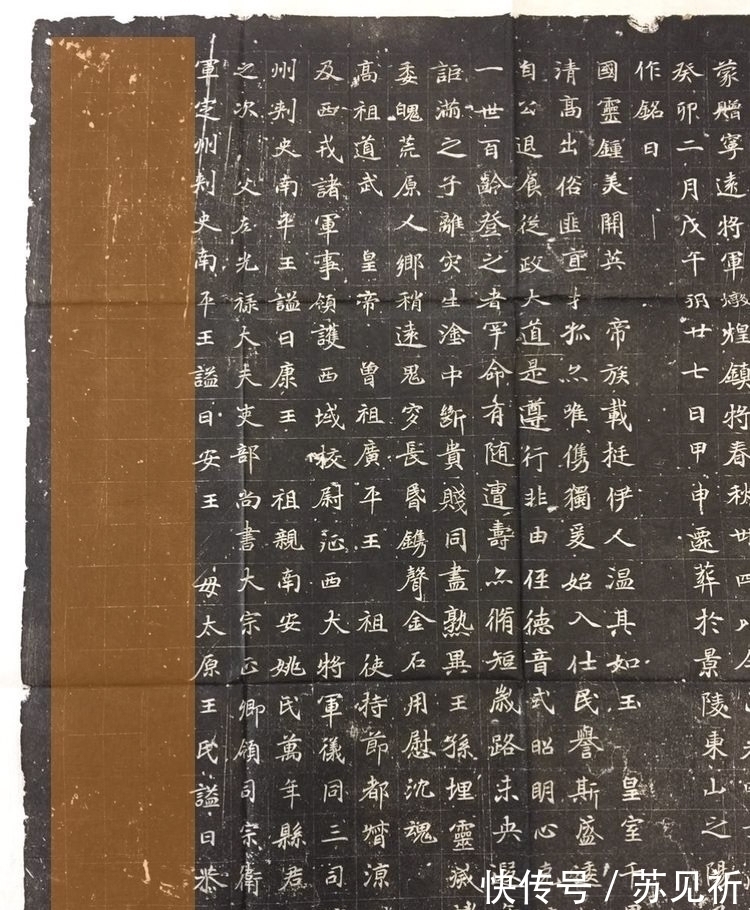 蒙贈寧遠將軍燉煌鎮將春秋卌四
癸卯二月戊午朔廿七日甲申遷葬於景陵東山之陽
作銘曰
國靈鍾美開英 帝族載挺伊人温其如玉 皇室千
清高出俗匪直才孤亦唯儁獨爰始入仕民譽斯盛逶
自公退食從政大道是遵行非由徑德音式昭明心
一世百齡登之者罕命有随遭壽亦脩短歲路未央
詎滿之子離灾生淦中斷貴賤同盡熟異王孫埋靈滅
委魄荒原人鄉稍遠鬼穸長昏鐫聲金石用慰沈魂
高祖道武 皇帝 曾祖廣平王 祖使持節都督涼
及西戎諸軍事領護西域校尉征西大將軍儀同三司
州刺史南平王謚曰康王 祖親南安姚氏萬年縣君
之次父左光禄大夫吏部尚書大宗正卿領司宗衛
軍定州刺史南平王謚曰安王 母太原王氏謚曰恭
快传号 / 苏见祈